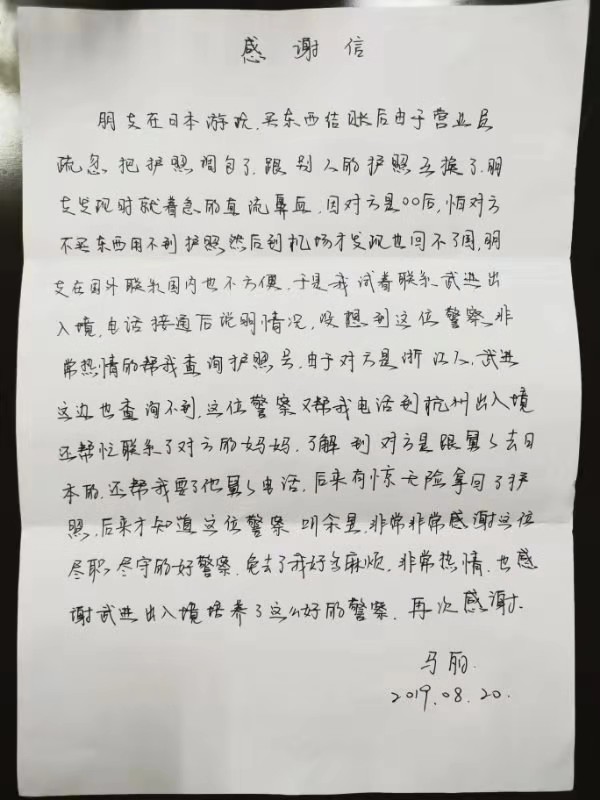 感谢信
朋友在日本游玩,买东西结账后由于营业员
疏忽把护照调包了,跟别人的护照互换了,朋
友发现时就着急的直流鼻血,因对方是00后,怕对方
不买东西用不到护照然后到机场才发现也回不了国,朋
友在国外联系国内也不方便,于是我试着联系武进出
入境,电话接通后说明情况,没想到这位警察非
常热情的帮我查询护照号,由于对方是浙江人,武进
这边也查询不到,这位警察又帮我电话到杭州出入境
还帮忙联系了对方的妈妈,了解到对方是跟舅舅去日
本的,还帮我要了他舅舅电话,后来有惊无险拿回了护
照,后来才知道这位警察叫余星,非常非常感谢这位
尽职尽守的好警察,免去了我好多麻烦,非常热情,也感
谢武进出入境培养了这么好的警察,再次感谢.
马丽.
2019.08.20.